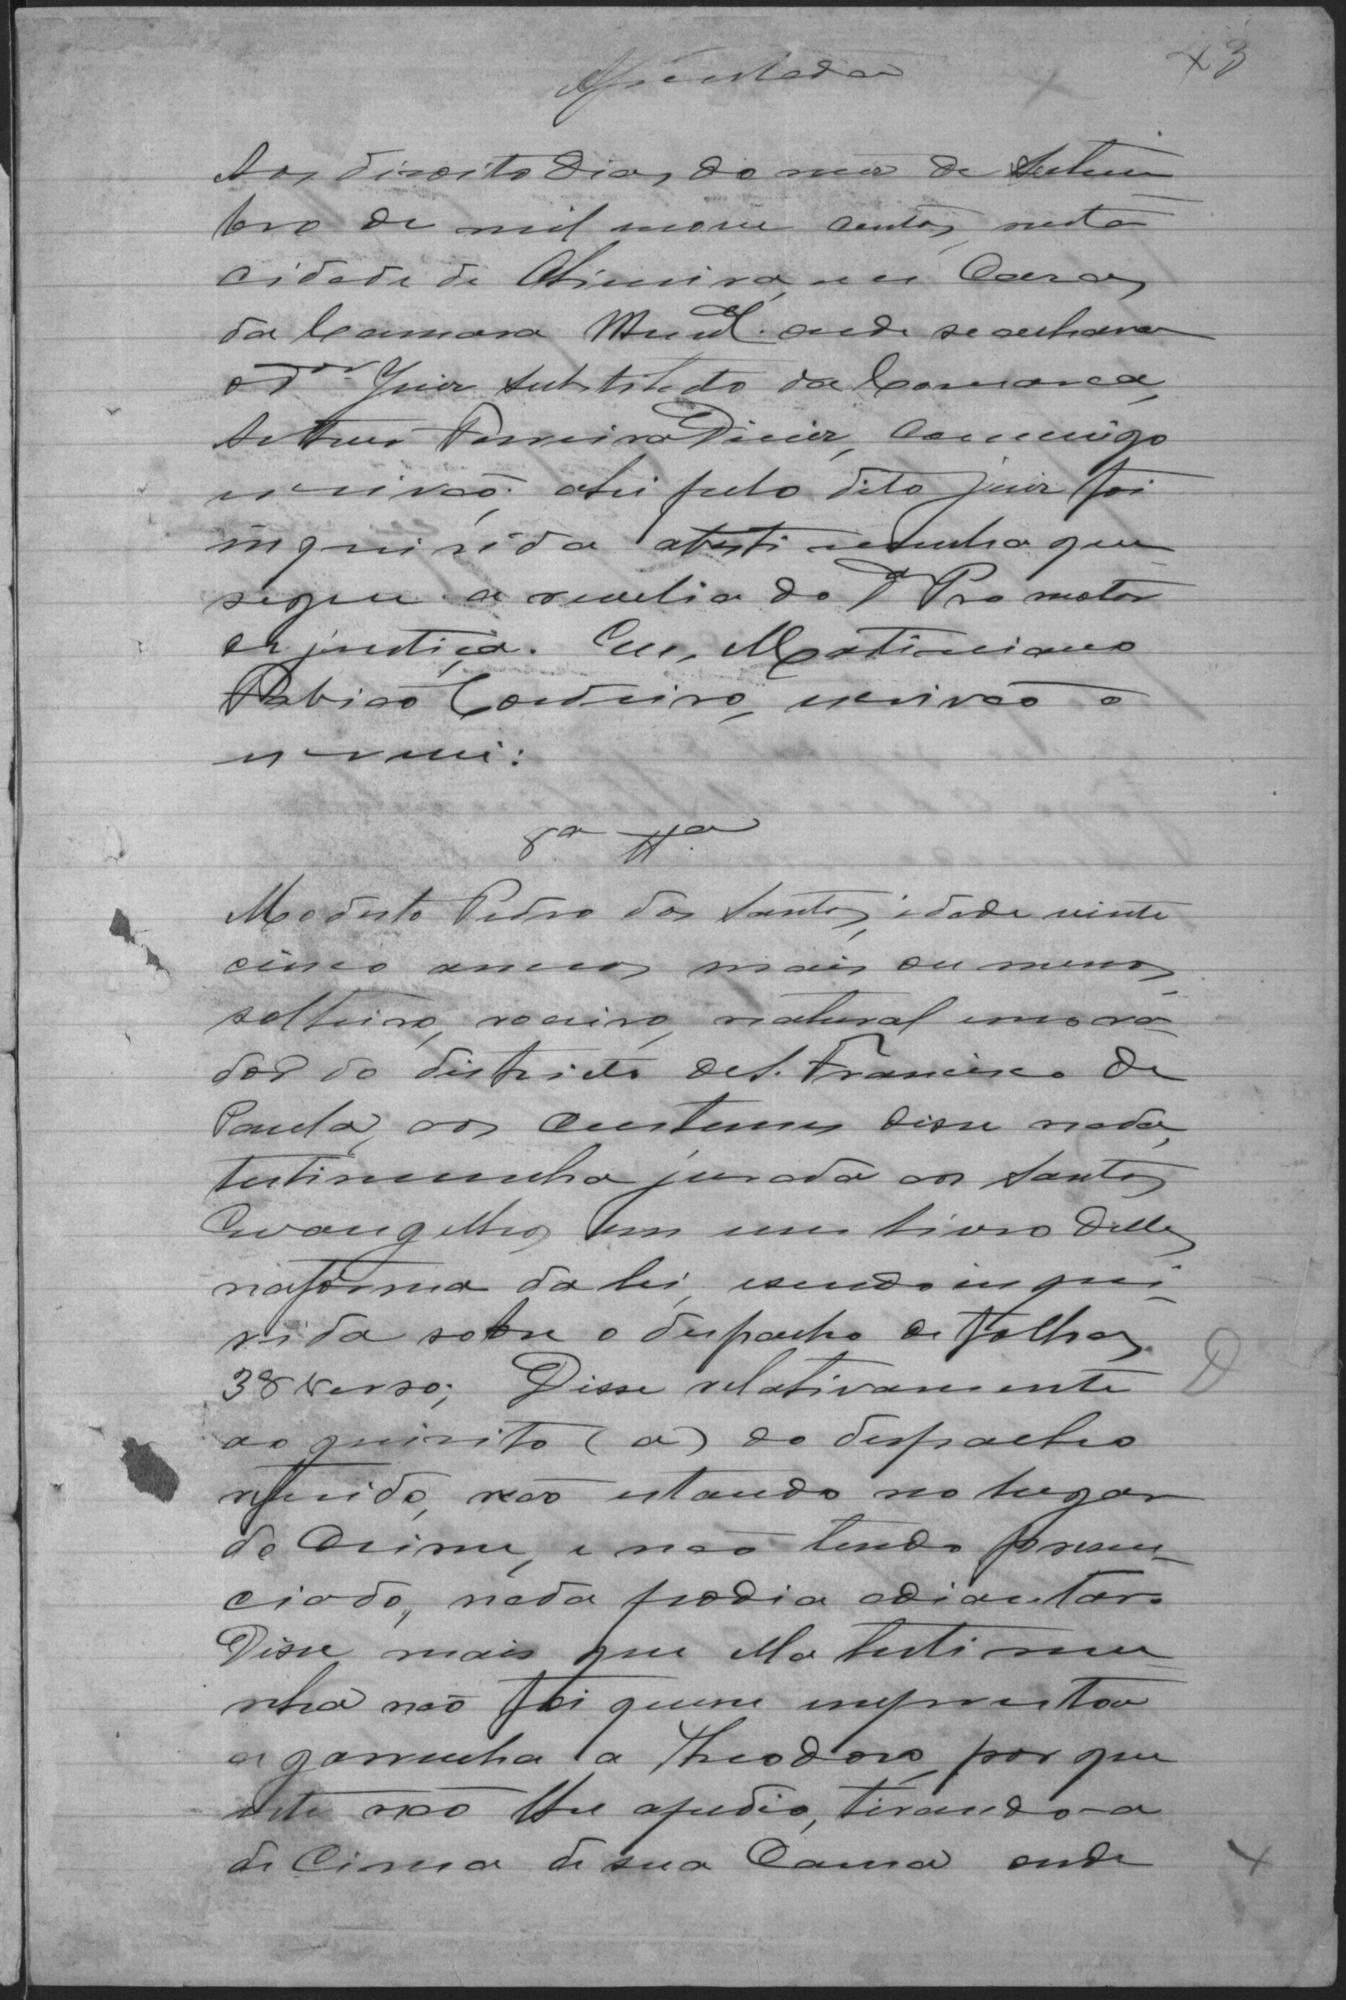 43
Assentada
Aos dizoito dias do mez de Setem
bro de mil nove centos, nesta
cidade de em Casa
da Camara Munal. onde se achava
o Dor Juiz Substituto da Comarca,
Arthur Ferreira Diniz, commigo
escrivaõ; ahi pelo dito juiz foi
inquirida atesti munha que
segue a revelia do Dr Promotor
de justiça. Eu, Maximiano
Fabiaõ Cordeiro, escrivaõ o
escrevi:
8a Tta
Modesto Pedro dos Santos, idade vinte
cinco annos mais ou menos,
solteiro, roceiro, natural emora-
dor do districto de S. Francisco de
Paula, aos custumes disse nada,
testimunha jurada aos Santos
Evangelhos em um livro delles
naforma da lei, esendo inqui-
rida sobre o despacho de folhas
38 verso; Disse relativamente
ao quisito (a) do despacho
referido, naõ estando no lugar
do Crime, e naõ tendo presen-
ciado, nada podia adiantar.
Disse mais que ella testimu-
nha naõ foi quem emprestou
a garrucha a Theodoro, por que
este naõ lhe apedio, tirando-a
de cima de sua Cama onde